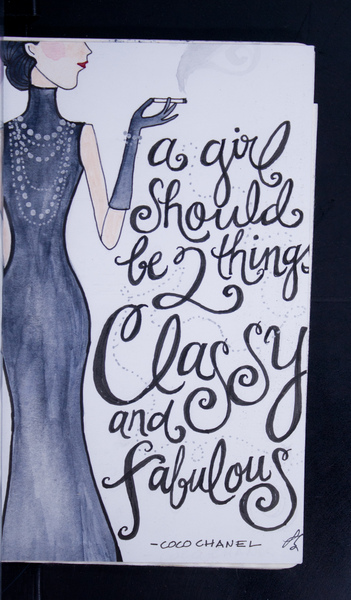 a girl
should
be 2 things
Classy
and
fabulous
-COCO CHANEL